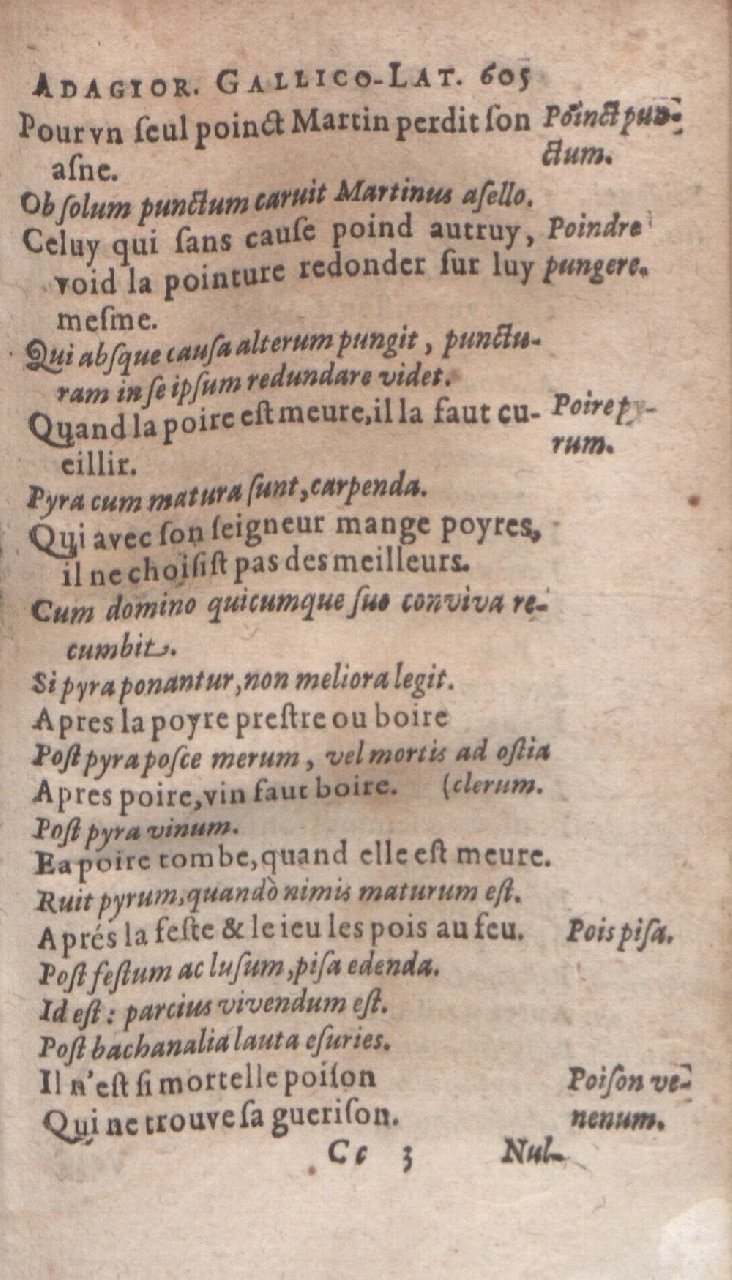 ADAGIOR. GALLICO-LAT. 605
Pour vn ſeul poinct Martin perdit ſon Poinct pun-
aſne. ctum.
Ob ſolum punctum caruit Martinus aſello.
Celuy qui ſans cauſe poind autruy, Poindre
void la pointure redonder ſur luy pungere.
meſme.
Qui abſque cauſa alterum pungit, punctu-
ram in ſe ipſum redundare videt.
Quand la poire eſt meure, il la faut cu- Poire py-
eillir. rum.
Pyra cum matura ſunt, carpenda.
Qui avec ſon ſeigneur mange poyres,
il ne choiſiſt pas des meilleurs.
Cum domino quicumque ſuo conviva re-
cumbit.
Si pyra ponantur, non meliora legit.
Apres la poyre preſtre ou boire
Poſt pyra poſce merum, vel mortis ad oſtia
Apres poire, vin faut boire. (clerum.
Poſt pyra vinum.
Ea poire tombe, quand elle eſt meure.
Ruit pyrum, quandò nimis maturum eſt.
Aprés la feſte & le ieu les pois au feu. Pois piſa.
Poſt feſtum ac luſum, piſa edenda.
Id eſt: parcius vivendum eſt.
Poſt bachanalia lauta eſuries.
Il n'eſt ſi mortelle poiſon Poiſon ve-
Qui ne trouve ſa gueriſon. nenum.
Cc 3 Nul-